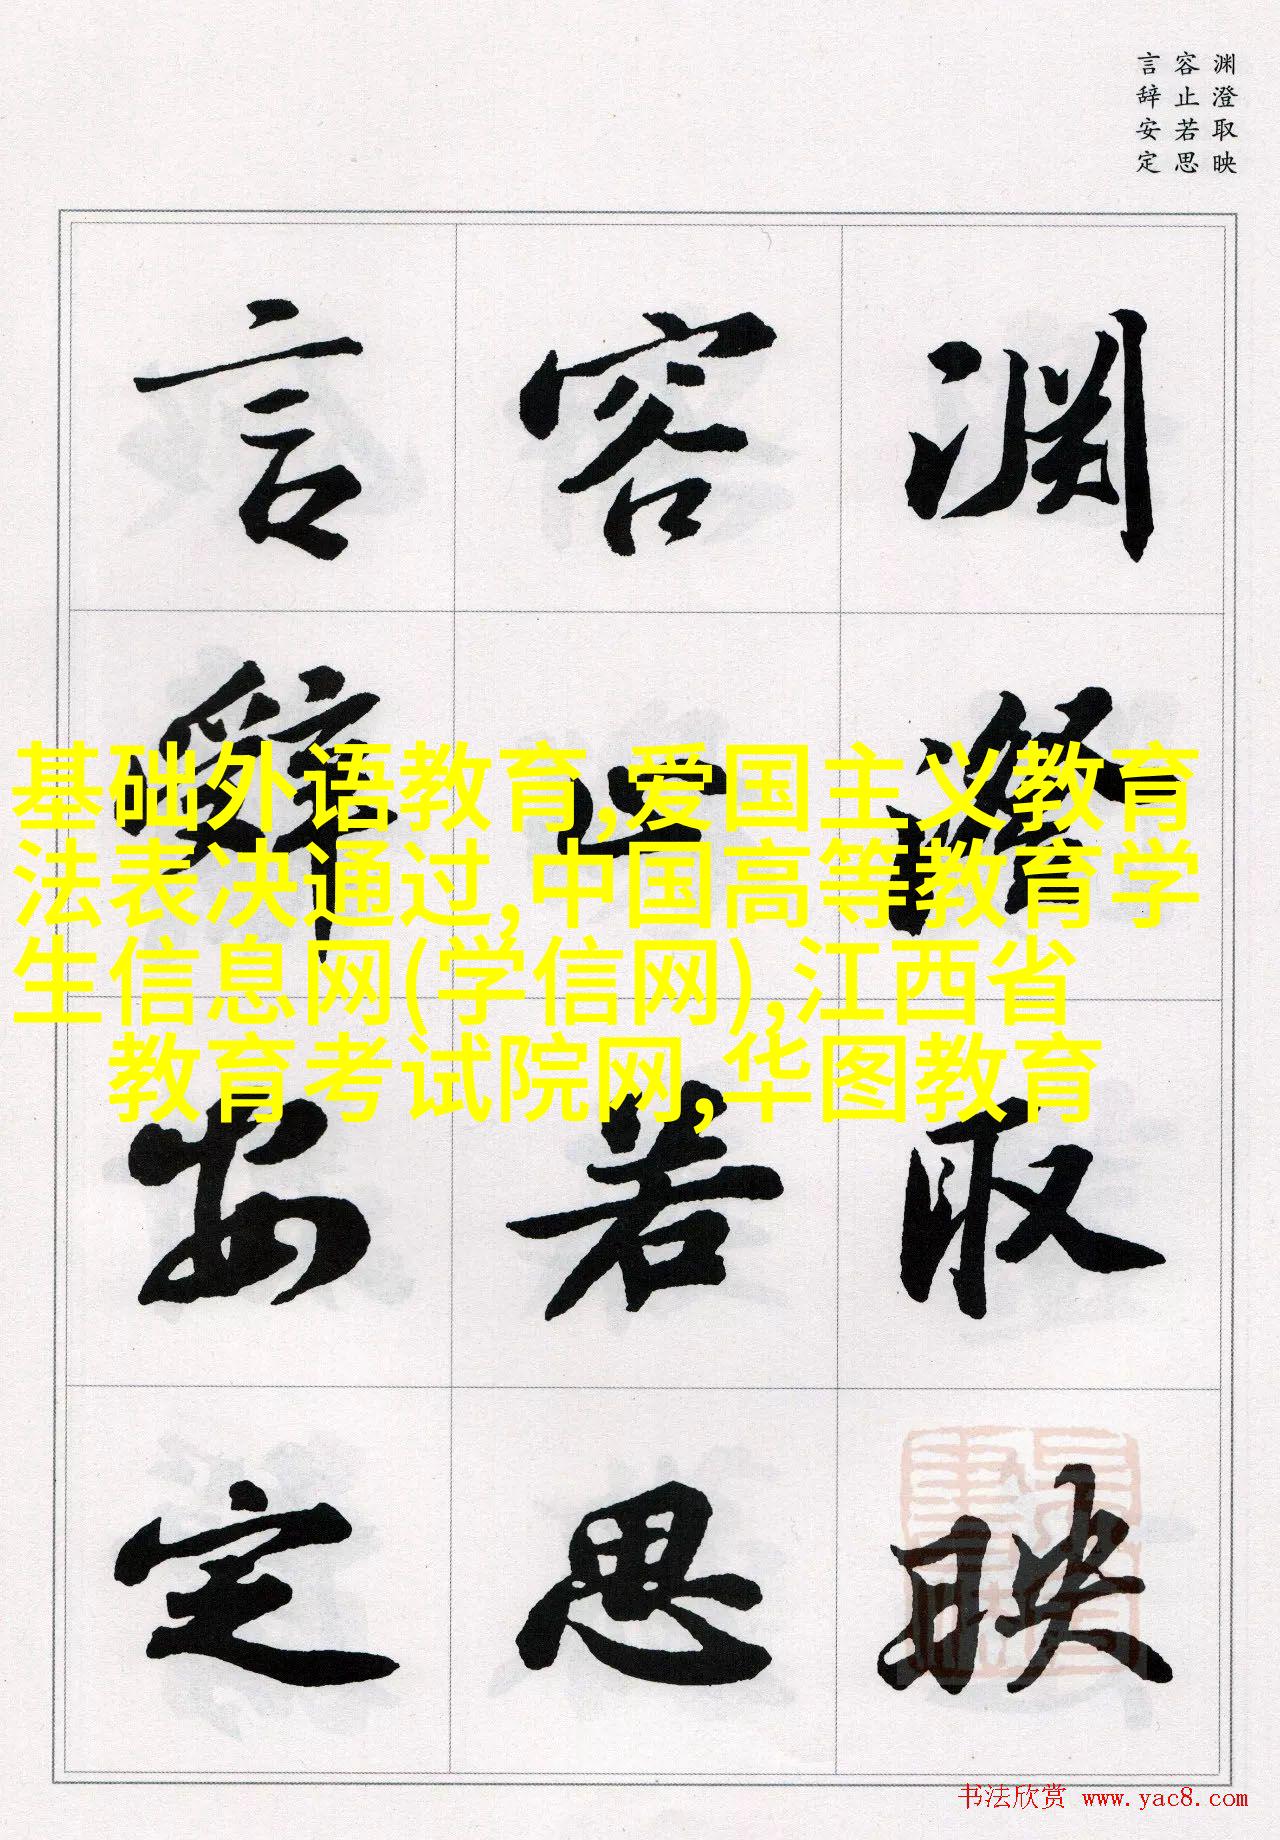 渊澄取映
容止若思
言辞安定
渊澄取映
容止若思
言辞安定
基础外语教育,爱国主义教育
法表决通过,中国高等教育学
生信息网(学信网),江西省
教育考试院网,华图教育
书法欣赏 www.yac8.com